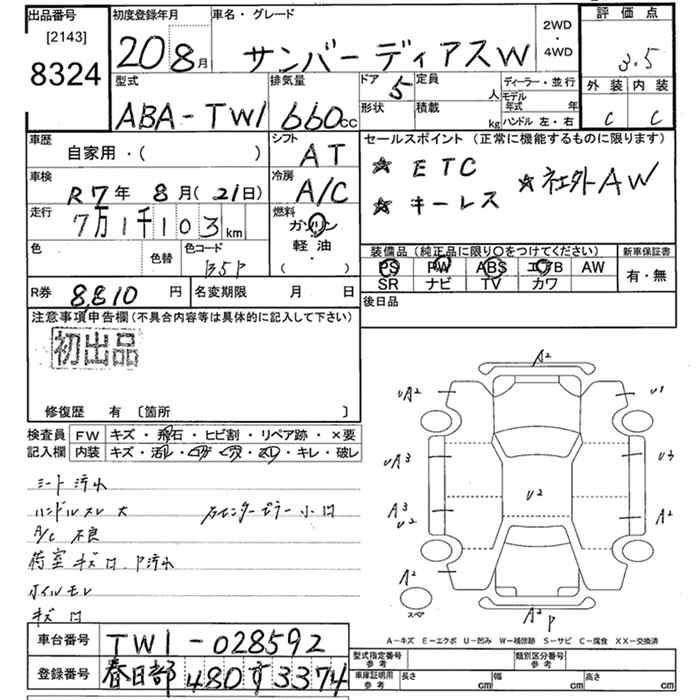 出品番号 初度登録年月 車名・グレード 2WD・4WD 評価点
[2143] 20 8月 サンバーディアスW 3.5
8324
型式 排気量 ドア 5 定員 人 ディーラー・並行 外装 内装
ABA-TW1 660cc 形状 積載 kg モデル年式 年 C C
ハンドル 左・右
車歴 シフト セールスポイント (正常に機能するものに限ります)
自家用・( ) AT ☆ ETC
車検 冷房 ☆ 社外AW
R7年 8月(21日) A/C ☆ キーレス
走行 燃料
7万1千103km ガソリン
色 色替 色コード 軽油 装備品 (純正品に限り○をつけてください) 新車保証書
B5P ・( ) PS PW ABS エアB AW 有・無
SR ナビ TV カワ
R券 8,810円 名変期限 月 日 後日品
注意事項申告欄(不具合内容等は具体的に記入して下さい)
初出品
修復歴 有 〔箇所 〕
検査員 FW キズ・飛石・ヒビ割・リペア跡・×要
記入欄 内装 キズ・汚レ・コゲ・穴・スレ・キレ・破レ
シート汚れ
ハンドルスレ大
A/C 不良
荷室キズ
ホイルモレ
キズ
A2
UA2 U1
UA3 U3
U2
A3 U2 A2
A2
スペア A2 P
A-キズ E-エクボ U-凹み W-補修跡 S-サビ C-腐食 XX-交換済
車台番号 TW1-028592
登録番号 春日部 480 す 3374
型式指定番号 参考 類別区分番号 参考
車庫証明用 参考 長さ cm 幅 cm 高さ cm